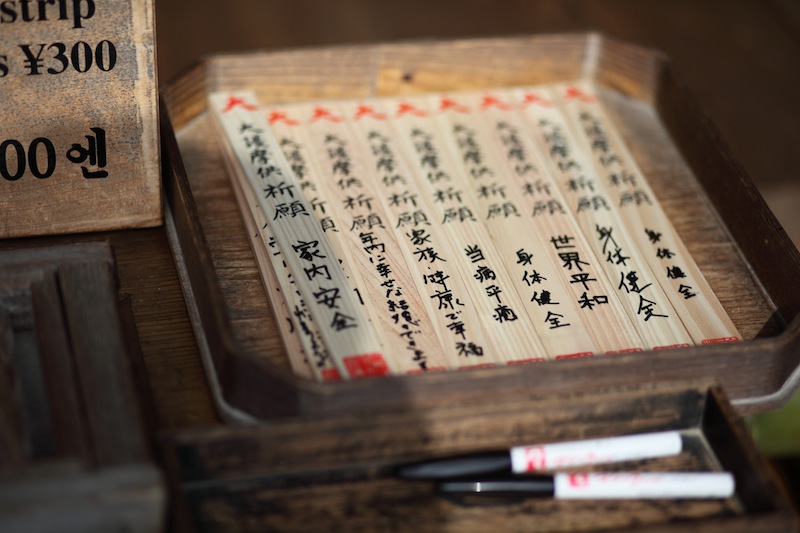 strip
s ¥300
00 엔
大護摩供祈願 家内安全
大護摩供祈願
大護摩供祈願 年内に幸せな結婚ができ
大護摩供祈願 家族 幸福
大護摩供祈願 当病平癒
大護摩供祈願 身体健全
大護摩供祈願 世界平和
大護摩供祈願 身体健全
大護摩供祈願 身体健全